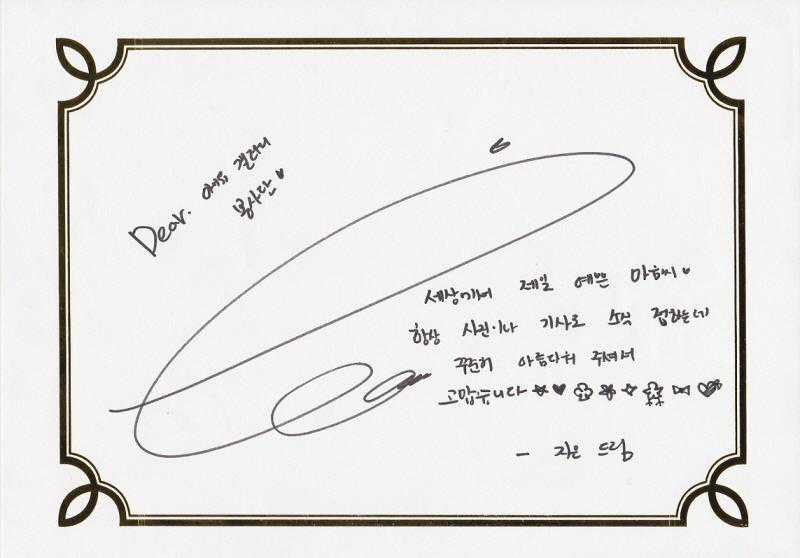 Dear. 아이유 갤러리
봉사단♥
세상에서 제일 예쁜 마음씨♥
항상 사진이나 기사로 소식 접하는데
꾸준히 아름다워 주셔서
고맙습니다
- 지은 드림